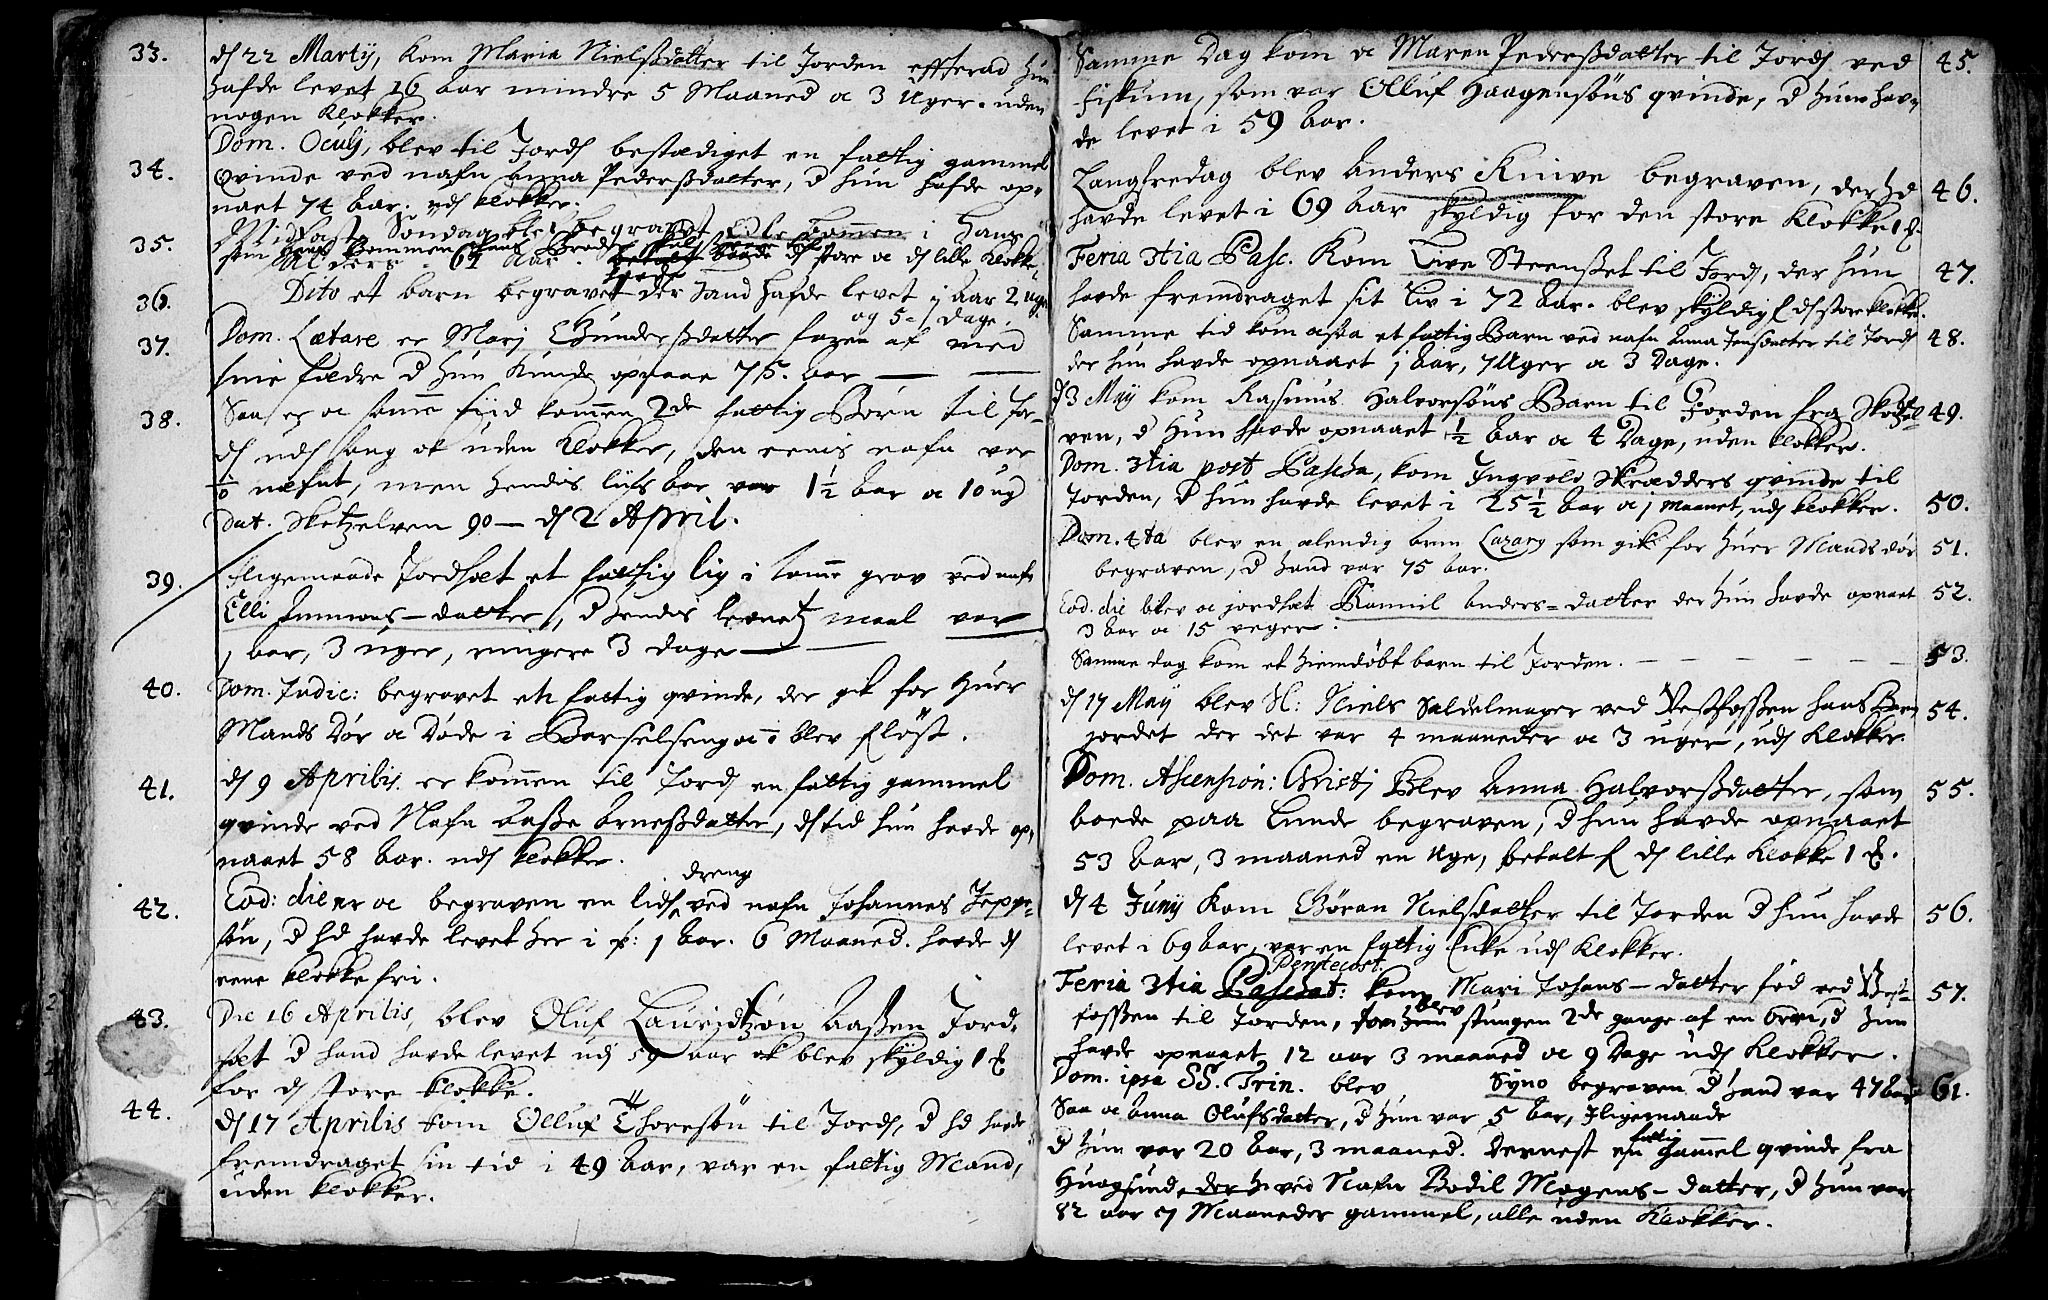 33. d 22 Martij, kom Maria Nielsßdatter til Jorden efterad hun
hafde levet 16 Aar mindre 5 Maaned oc 3 Uger. uden
nogen Klokker.
34. Dom. Oculj, blev til Jord bestædiget en fattig gammel
Qvinde ved nafn Anna Pedersßdatter, d hun hafde op-
naaet 74 Aar. ud Klokker.
35. Midfaste Søndag blev begravet i Hans
Alders 61 Aar. d store oc d lille Klokke
36. Dito et barn begravet der hand hafde levet 1 aar 2 uger
og 5 dage.
37. Dom. Lætare er Marj Gundersßdatter faren af med
sine fædre d hun kunde opnaae 75. Aar —
38. Saa er oc same tiid kommen 2de fattig Børn til Jor-
d ud sang ok uden Klokker, den eenis nafn var
næfnt, men hendis liifs Aar var 1½ Aar oc 10 ug
Dat. Sketzelven 90 — d 2 April.
39. Iligemaade Jordsat et fattig lig i same grav ved nafn
Elli datter, d hendis levnets maal var
1 Aar, 3 uger, ringere 3 dage —
40. Dom. Judic: begravet en fattig qvinde, der gik for huer
Mands Dør oc Døde i Barselseng oc blev fløst.
41. d 9 Aprilis er kommen til Jord en fattig gammel
qvinde ved Nafn Aaße Arneßdatter, d tid hun havde op-
naaet 58 Aar. ud Klokker.
42. Eod: die er oc begraven en liden dreng ved nafn Johannes Jeppe-
søn, d hd havde levet her i 1 Aar. 6 Maaned. havde d
eene klokke fri.
43. Die 16 Aprilis, blev Oluf Lauridtzøn Aaßen Jord-
sat d hand havde levet ud 59 aar ok blev skyldig 1
for d store Klokke.
44. d 17 Aprilis kom Olluf Thoresøn til Jord, d hd havde
fremdraget sin tid i 49 Aar, var en fattig Mand,
uden klokker.
Samme Dag kom oc Maren Pedersßdatter til Jord ved 45.
Fiskum, som var Olluf Haagensøns qvinde, d hun hav-
de levet i 59 Aar.
Langfredag blev Anders Knive begraven, der hd 46.
havde levet i 69 Aar skyldig for den store Klokke 1
Feria 3tia Pasc. Kom Live Steensßet til Jord, der hun 47.
havde fremdraget sit Liv i 72 Aar. blev skyldig f d store Klokke.
Samme tid kom et fattig Barn ved nafn Anna Jensdatter til Jord 48.
der hun havde opnaaet 1 Aar, 7 Uger oc 3 Dage.
d 3 Maij kom Rasmus Halvorsøns Barn til Jorden fra Skotzel 49.
ven, d hun havde opnaaet ½ Aar oc 4 Dage, uden klokker.
Dom. 3tia post Pascha, kom Ingvold Skrædders qvinde til
Jorden, d hun havde levet i 25½ Aar oc 1 maanet, ud klokker. 50.
Dom. 4ta blev en elendig arm Lazary som gik for huer Mands dør 51.
begraven, d hand var 75 Aar.
Eod. die blev oc jordsat Rannil Anders=datter der hun havde opnaaet 52.
3 Aar oc 15 veger.
Samme dag kom et hiemdøbt barn til Jorden. 53.
d 17 Maij blev Sl: Niels Saldelmager ved Vestfoßen hans Barn 54.
jordet der det var 4 maaneder oc 3 uger, ud Klokker.
Dom. Ascension: Christj Blev Anna Halvorsßdatter, som 55.
boede paa Lunde begraven, d hun havde opnaaet
53 Aar, 3 maaned en Uge, betalt f d lille Klokke 1
d 4 Junij Kom Gøran Nielsdatter til Jorden d hun havde 56.
levet i 69 Aar, var en fattig Enke ud Klokker.
Pentecost.
Feria 3tia Paschat: kom Mari Johans-datter fød ved Vest- 57.
foßen til Jorden, blev stungen 2de gange af en orm, d hun
havde opnaaet 12 aar 3 maaned oc 9 Dage ud Klokker.
Dom. ipsa SS. Trin. blev Syno begraven d hand var 47 Aar 61.
Saa oc Anna Olufsdatter, d hun var 5 Aar, Iligemaade
d hun var 20 Aar, 3 maaned. Dernest en fattig gammel qvinde fra
Huogsund, der h ved Nafn Bodil Mogens-datter, d hun var
82 aar 7 Maaneder gammel, alle uden Klokker.